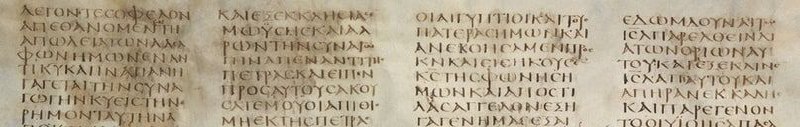 ΛΕΓΟΝΤΕϹΟΦΕΛΟΝ
ΑΠΕΘΑΝΟΜΕΝΕΝΤΗ
ΑΠΩΛΙΑΤΩΝΑΔΕΛ
ΦΩΝΗΜΩΝΕΝΑΝ
ΤΙΚΥΚΑΙΙΝΑΤΙΑΝΗ
ΓΑΓΕΤΑΙΤΗΝϹΥΝΑ
ΓΩΓΗΝΚΥΕΙϹΤΗΝΕ
ΡΗΜΟΝΤΑΥΤΗΝΑ
ΚΑΙΕΞΕΚΚΛΗϹΙΑϹΕ
ΜΩΥϹΗϹΚΑΙΑΑ
ΡΩΝΤΗΝϹΥΝΑΓΩ
ΓΗΝΑΠΕΝΑΝΤΙΤΗϹ
ΠΕΤΡΑϹΚΑΙΕΙΠΕΝ
ΠΡΟϹΑΥΤΟΥϹΑΚΟΥ
ϹΑΤΕΜΟΥΟΙΑΠΙΘΙϹ
ΜΗΕΚΤΗϹΠΕΤΡΑϹ
ΟΙΑΙΓΥΠΤΙΟΙΚΑΙΤΟΥϹ
ΠΑΤΕΡΑϹΗΜΩΝΚΑΙ
ΑΝΕΒΟΗϹΑΜΕΝΠΡΟϹ
ΚΝΚΑΙΕΙϹΗΚΟΥϹΕ
ΚϹΤΗϹΦΩΝΗϹΗ
ΜΩΝΚΑΙΑΠΟϹΤΙ
ΛΑϹΑΓΓΕΛΟΝΕΞΗ
ΓΑΓΕΝΗΜΑϹΕΞΑΙ
ΕΔΩΜΔΟΥΝΑΙΤΩ
ΙϹΛΠΑΡΕΛΘΕΙΝΔΙ
ΑΤΩΝΟΡΙΩΝΑΥ
ΤΟΥΚΑΙΕΞΕΚΛΙΝΕ
ΙϹΛΑΠΑΥΤΟΥΚΑΙ
ΑΠΗΡΑΝΕΚΚΑΔΗϹ
ΚΑΙΠΑΡΕΓΕΝΟΝ
ΤΟΟΙΥΙΟΙΙϹΛΠΑ